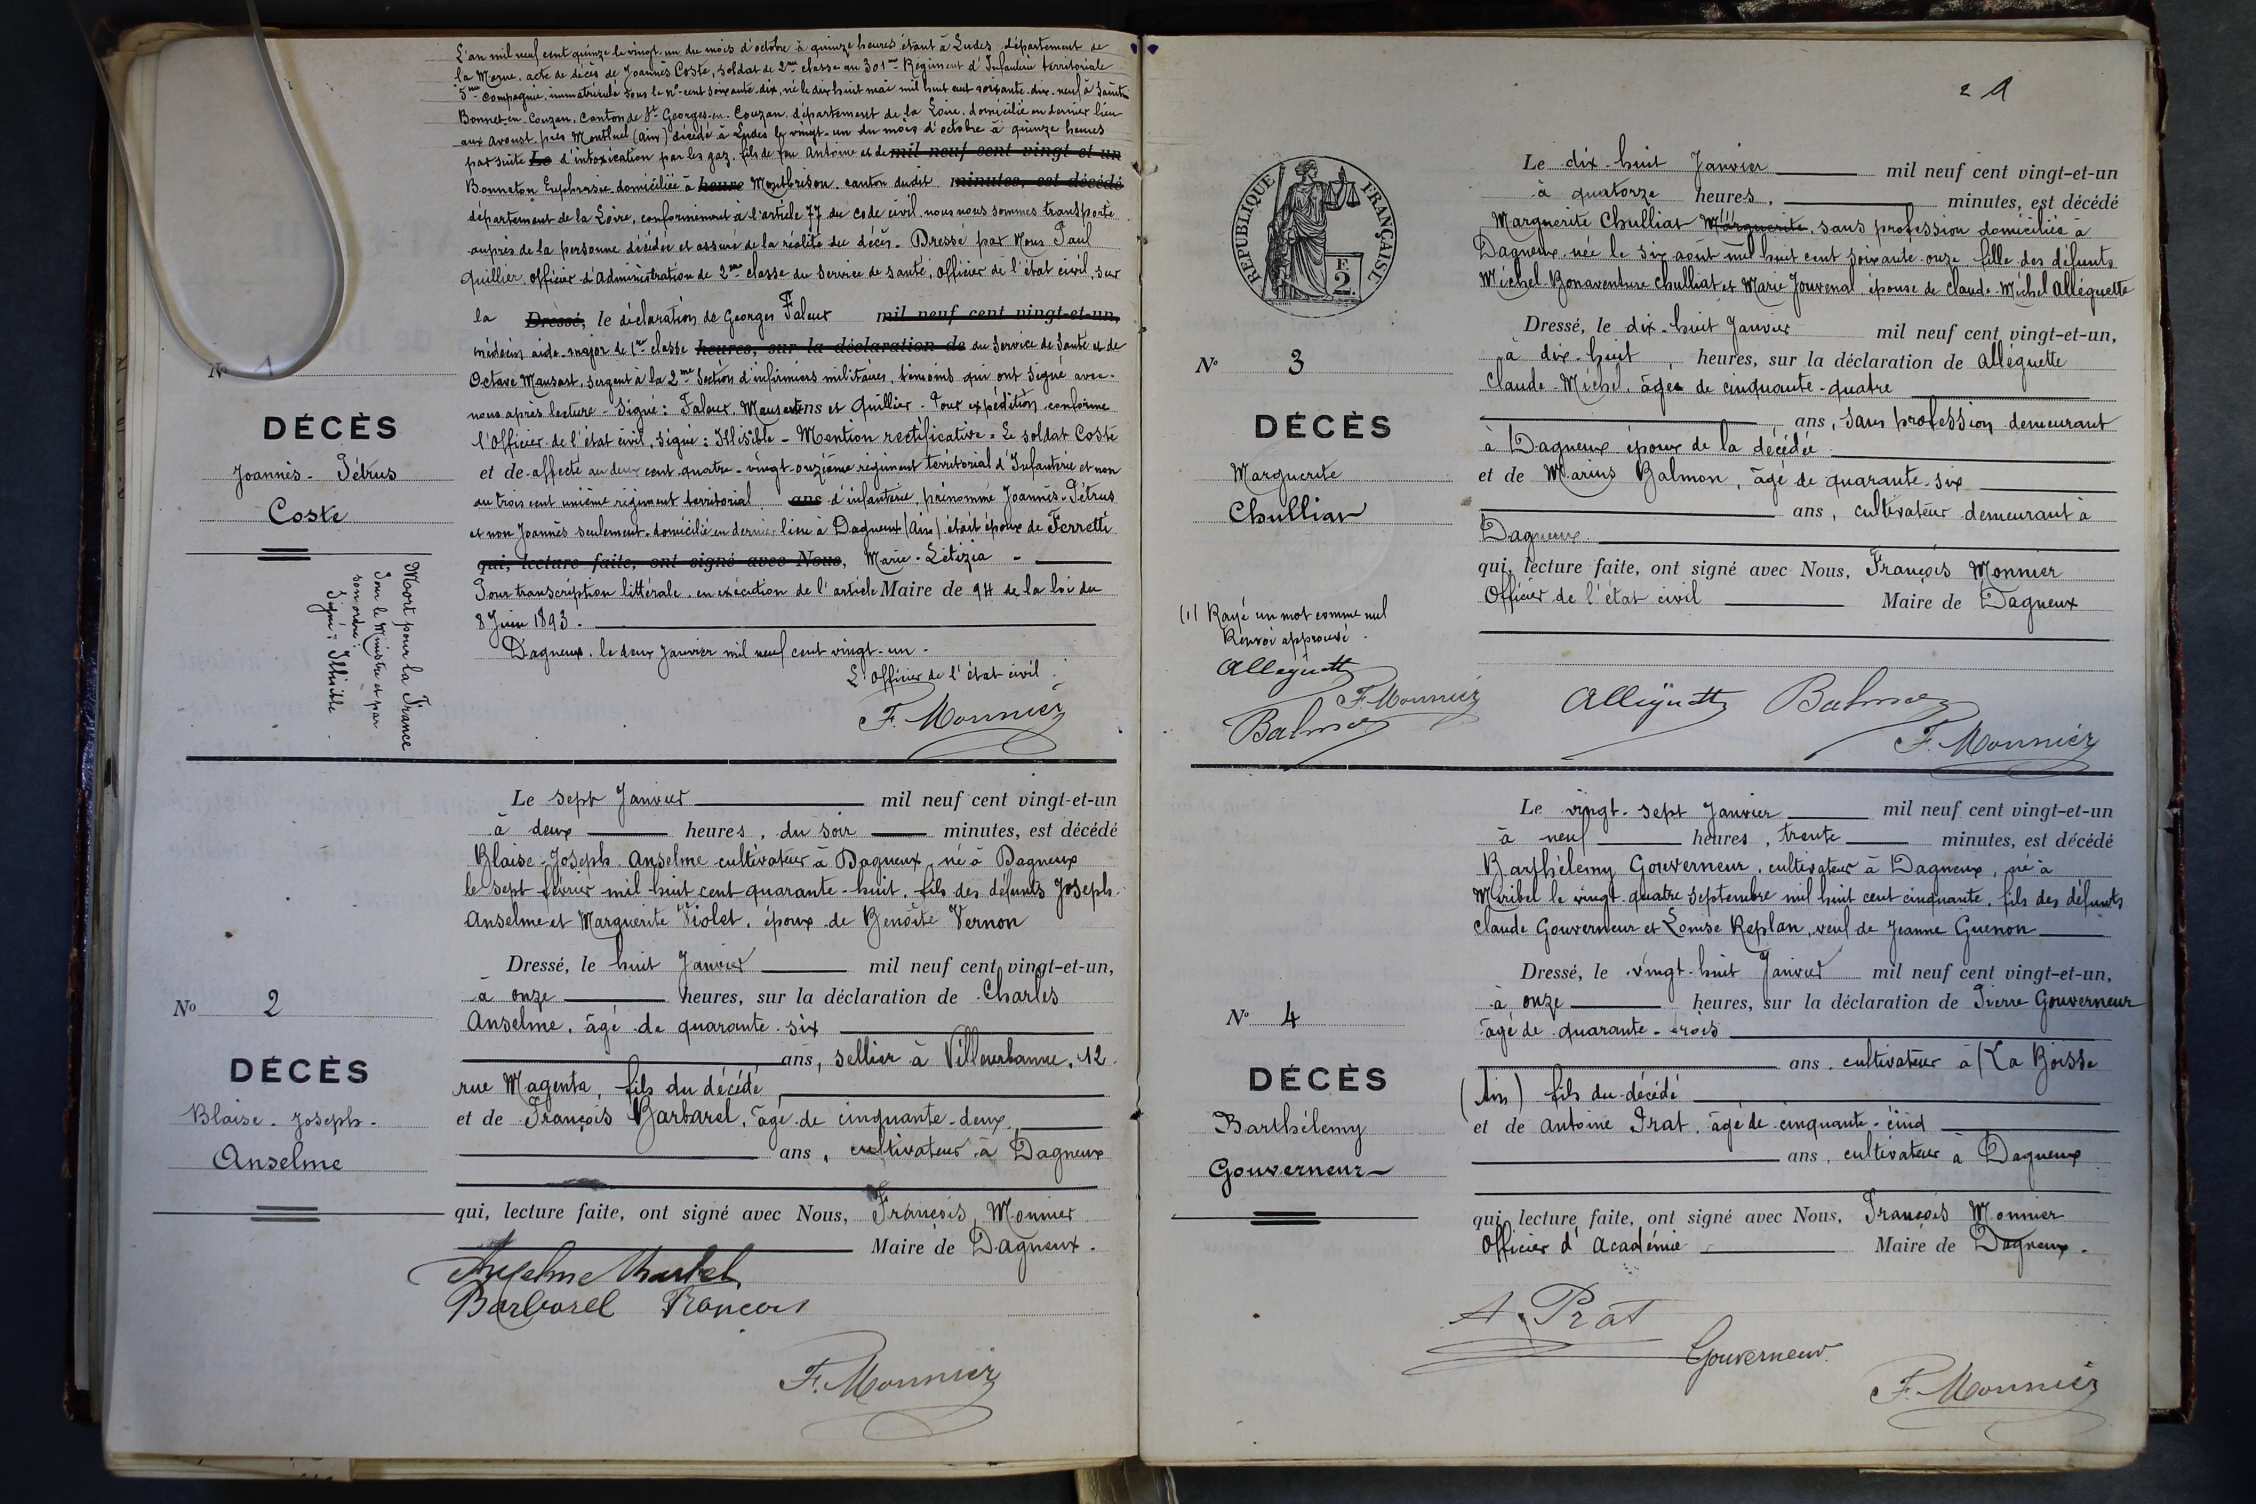 L'an mil neuf cent quinze le vingt-un du mois d'octobre à quinze heures étant à Ludes département de
la Marne. acte de décès de Joannès Coste, soldat de 2me classe au 301me Régiment d'Infanterie territoriale
5me compagnie. immatriculé sous le n° cent soixante-dix, né le dix huit mai mil huit cent soixante-dix-neuf à Saint-
Bonnet-en-Couzan. Canton de St Georges-en-Couzan. département de la Loire. domicilié en dernier lieu
aux Avoust près Montluel (Ain) décédé à Ludes le vingt-un du mois d'octobre à quinze heures
par suite Le d'intoxication par les gaz. fils de feu Antoine et de mil neuf cent vingt-et-un
Bonneton Euphrasie domiciliée à heure Montbrison. canton dudit minutes, est décédé
département de la Loire, conformément à l'article 77 du code civil. nous nous sommes transporté
auprès de la personne décédée et assuré de la réalité du décès. Dressé par Nous Paul
Quillier. officier d'Administration de 2me classe du Service de santé, officier de l'état civil, sur
la Dressé, le déclaration de Georges Faleur mil neuf cent vingt-et-un,
médecin aide-major de 1re classe heures, sur la déclaration de du Service de Santé et de
Octave Mansart, sergent à la 2me Section d'infirmiers militaires, témoins qui ont signé avec
nous après lecture - Signé : Faleur. et Quillier. Pour expédition conforme
l'Officier de l'état civil, signé : Illisible - Mention rectificative. Le soldat Coste
et de affecté au deux cent quatre-vingt-onzième régiment territorial d'Infanterie et non
au trois cent unième régiment territorial ans d'infanterie, prénommé Joannès-Pétrus
et non Joannès seulement. domicilié en dernier lieu à Dagneux (Ain) était époux de Ferretti
qui, lecture faite, ont signé avec Nous, Marie-Létizia -
Pour transcription littérale. en exécution de l'article Maire de 94 de la loi du
8 Juin 1893.
Dagneux. le deux Janvier mil neuf cent vingt-un.
L'Officier de l'état civil.
F. Monnier
N° 1
DÉCÈS
Joannès-Pétrus
Coste
Mort pour la France
Pour le Ministre et par
son ordre :
Signé : Illisible
Le sept Janvier mil neuf cent vingt-et-un
à deux heures, du soir minutes, est décédé
Blaise-Joseph Anselme cultivateur à Dagneux, né à Dagneux
le sept février mil huit cent quarante-huit. fils des défunts Joseph
Anselme et Marguerite Violet. époux de Benoîte Vernon
Dressé, le huit Janvier mil neuf cent vingt-et-un,
à onze heures, sur la déclaration de Charles
Anselme. âgé de quarante-six
ans, sellier à Villeurbanne, 12
rue Magenta, fils du décédé
et de François Barbarel, âgé de cinquante-deux
ans, cultivateur à Dagneux
qui, lecture faite, ont signé avec Nous, François Monnier
Maire de Dagneux.
N° 2
DÉCÈS
Blaise-Joseph-
Anselme
Anselme Charles
Barbarel François
F. Monnier
2
REPUBLIQUE FRANÇAISE
F.
2.
Le dix-huit Janvier mil neuf cent vingt-et-un
à quatorze heures, minutes, est décédé
Marguerite Chulliat Marguerite. sans profession domiciliée à
Dagneux née le six août mil huit cent soixante-onze fille des défunts
Michel-Bonaventure Chulliat et Marie Jouvenal épouse de Claude-Michel Alléguette
Dressé, le dix-huit Janvier mil neuf cent vingt-et-un,
à dix-huit heures, sur la déclaration de Alléguette
Claude-Michel. âgée de cinquante-quatre
ans, sans profession demeurant
à Dagneux époux de la décédée
et de Marius Balmon, âgé de quarante-six
ans, cultivateur demeurant à
Dagneux.
qui, lecture faite, ont signé avec Nous, François Monnier
Officier de l'état civil Maire de Dagneux
N° 3
DÉCÈS
Marguerite
Chulliat
(1) Rayé un mot comme nul
Renvoi approuvé.
Alleguette
F. Monnier
Balmon
Alleguette Balmon
F. Monnier
Le vingt-sept Janvier mil neuf cent vingt-et-un
à neuf heures, trente minutes, est décédé
Barthélemy Gouverneur, cultivateur à Dagneux, né à
Miribel le vingt-quatre Septembre mil huit cent cinquante. fils des défunts
Claude Gouverneur et Louise Replan, veuf de Jeanne Guenon
Dressé, le vingt-huit Janvier mil neuf cent vingt-et-un,
à onze heures, sur la déclaration de Pierre Gouverneur
âgé de quarante-trois
ans. cultivateur à (La Boisse
(Ain) fils du décédé
et de Antoine Prat. âgé de cinquante-cinq
ans. cultivateur à Dagneux
qui, lecture faite, ont signé avec Nous, François Monnier
Officier d'Académie Maire de Dagneux.
N° 4
DÉCÈS
Barthélemy
Gouverneur
A. Prat
Gouverneur
F. Monnier